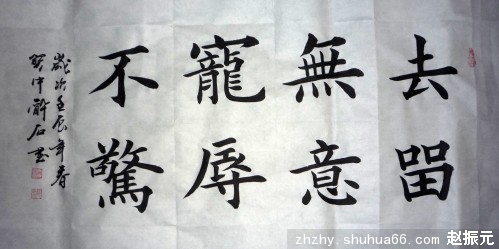 去留
無意
寵辱
不驚
歲次壬辰年春
zhzhy.shuhua66.com 赵振元